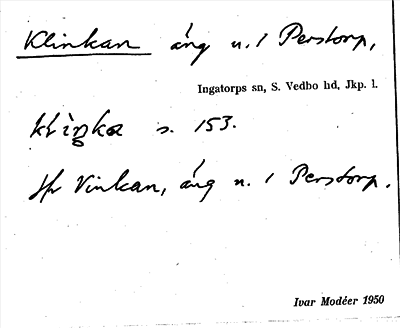 Klinkan äng n. 1 Perstorp,
Ingatorps sn, S. Vedbo hd, Jkp. l.
s. 153.
Jfr Vinkan, äng n. 1 Perstorp.
Ivar Modéer 1950